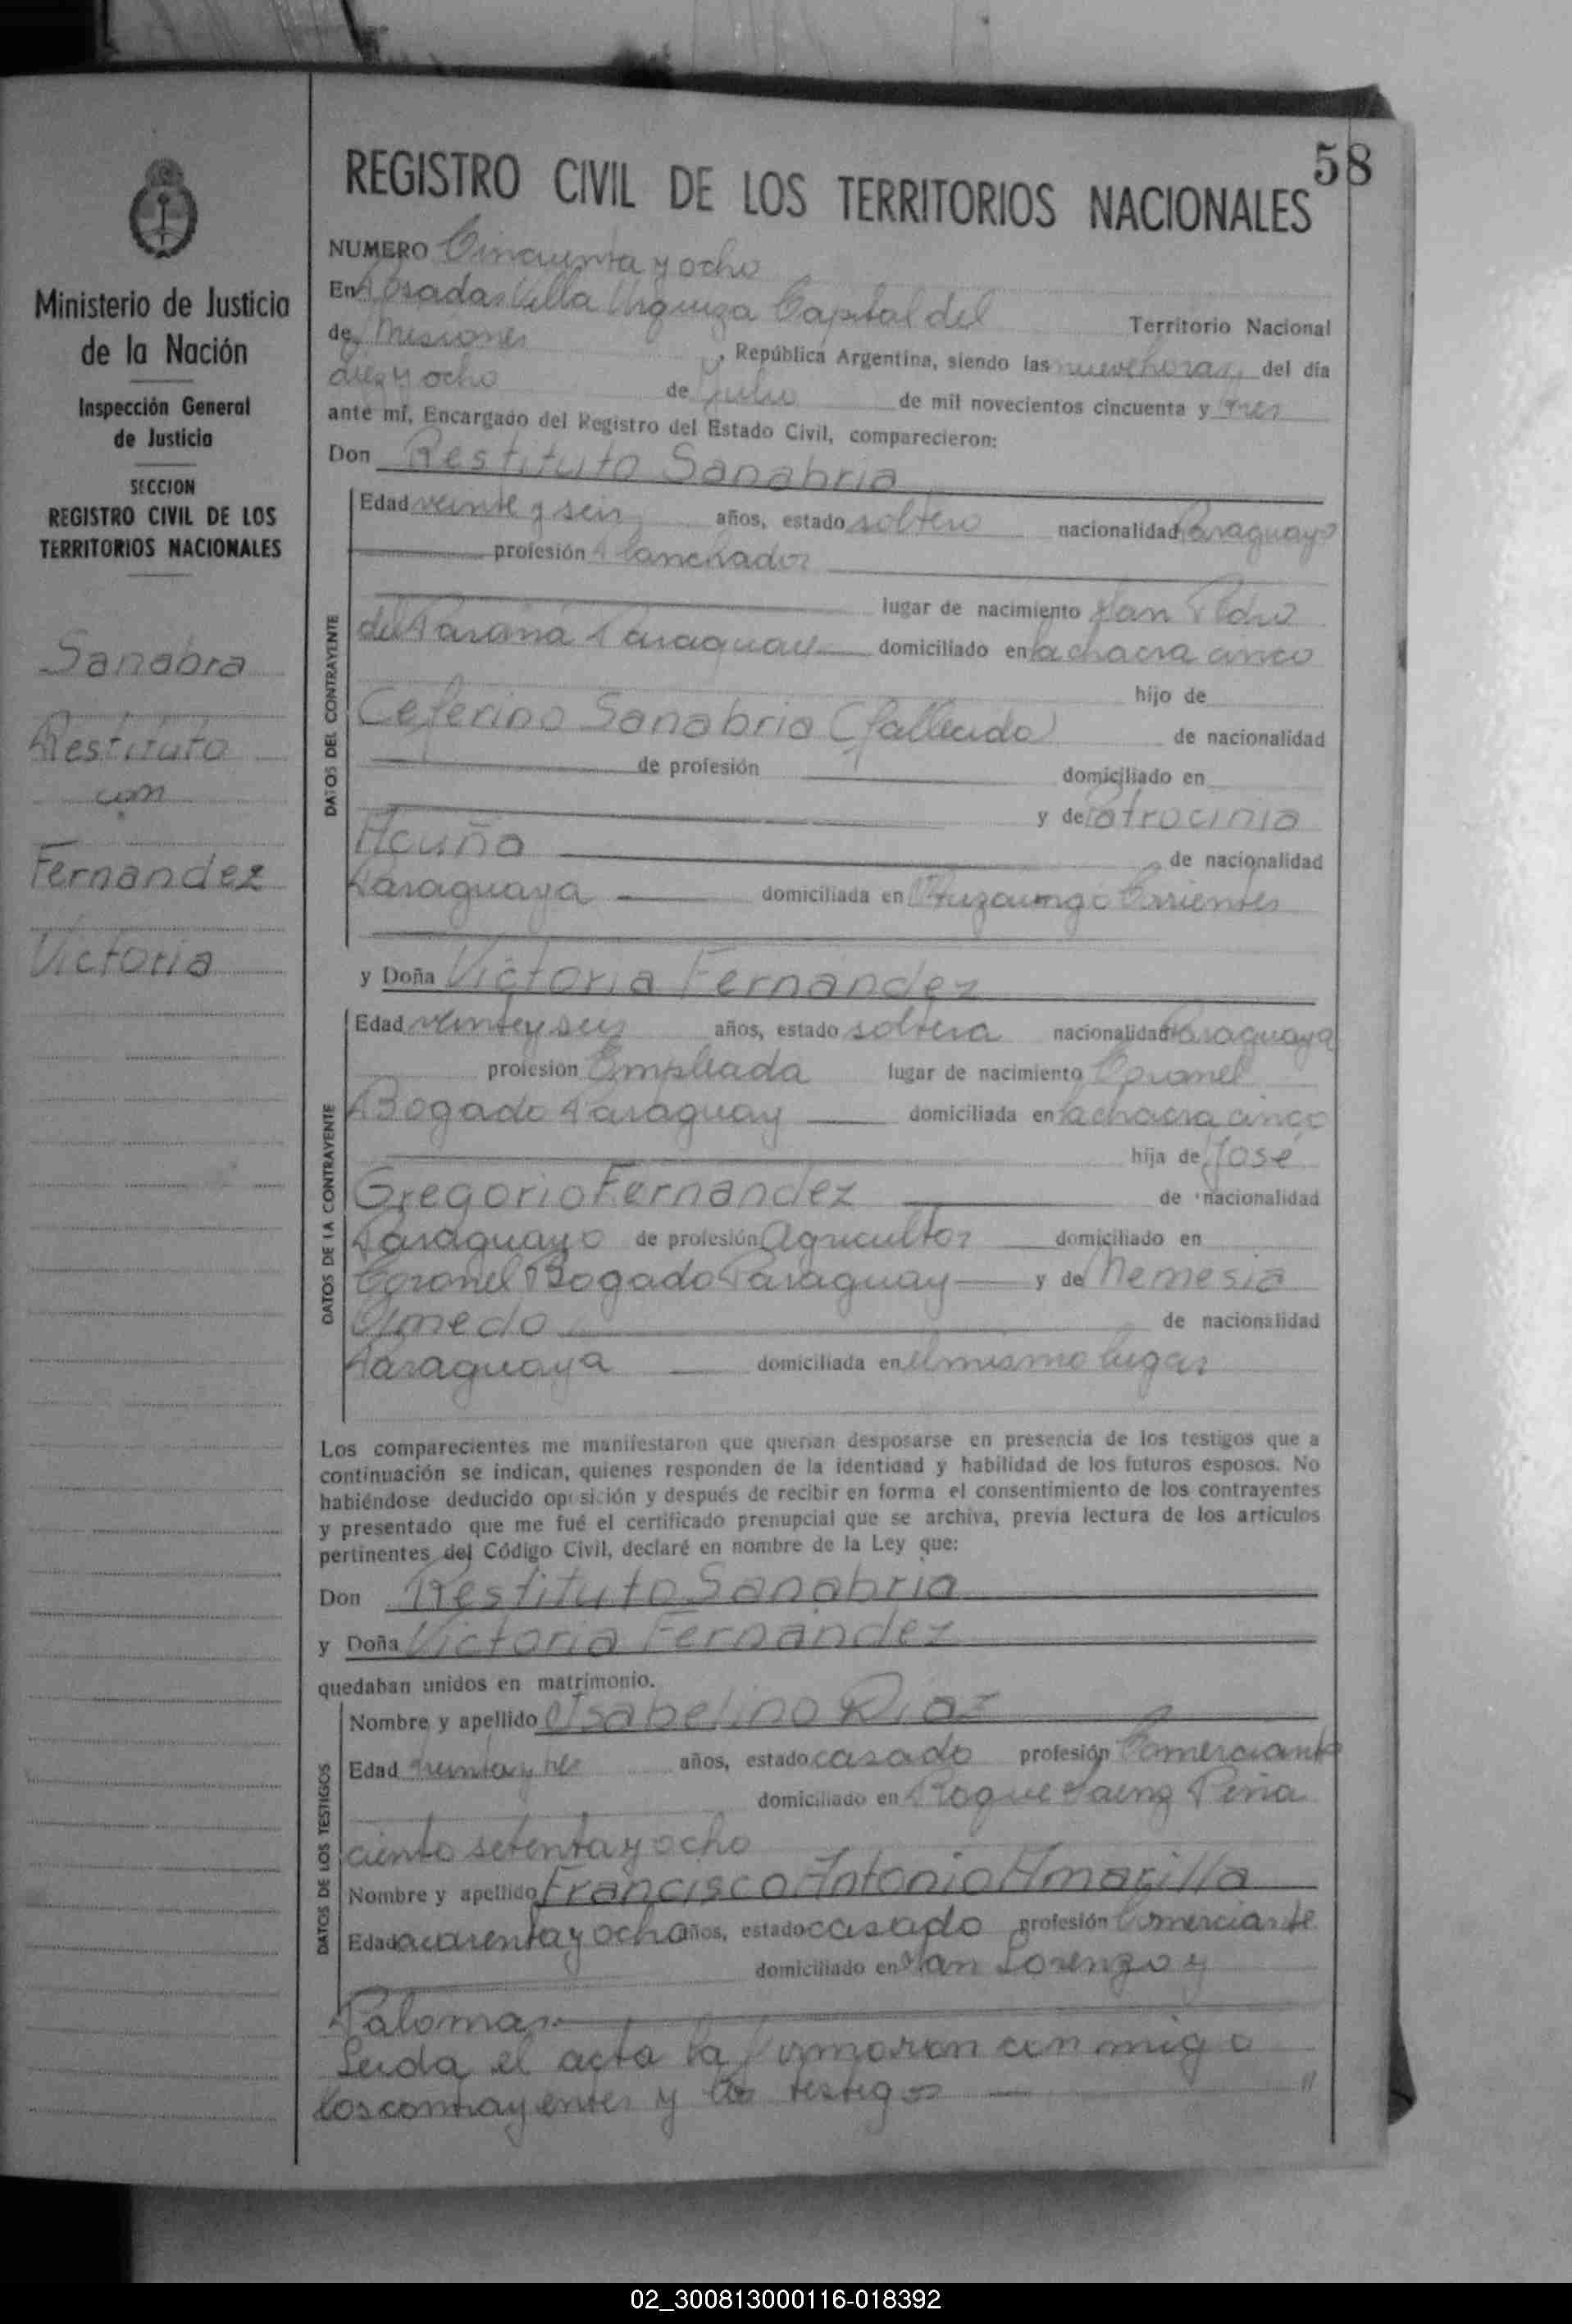 58
REGISTRO CIVIL DE LOS TERRITORIOS NACIONALES
Ministerio de Justicia
de la Nación
Inspección General
de Justicia
SECCION
REGISTRO CIVIL DE LOS
TERRITORIOS NACIONALES
Sanabra
Restituto
con
Fernandez
Victoria
NUMERO Cincuenta y ocho
En Posadas Villa Urquiza Capital del Territorio Nacional
de Misiones, República Argentina, siendo las nueve horas, del día
diez y ocho de Julio de mil novecientos cincuenta y tres
ante mí, Encargado del Registro del Estado Civil, comparecieron:
Don Restituto Sanabria
DATOS DEL CONTRAYENTE
Edad veinte y seis años, estado soltero nacionalidad Paraguayo
profesión Planchador
lugar de nacimiento San Pedro
del Paraná Paraguay domiciliado en la chacra cinco
hijo de
Ceferino Sanabria (fallecido) de nacionalidad
de profesión domiciliado en
y de Patrocinia
Acuña de nacionalidad
Paraguaya domiciliada en Ituzaingó Corrientes
y Doña Victoria Fernandez
DATOS DE LA CONTRAYENTE
Edad veinte y seis años, estado soltera nacionalidad Paraguaya
profesión Empleada lugar de nacimiento Coronel
Bogado Paraguay domiciliada en la chacra cinco
hija de José
Gregorio Fernandez de nacionalidad
Paraguayo de profesión Agricultor domiciliado en
Coronel Bogado Paraguay y de Nemesia
Olmedo de nacionalidad
Paraguaya domiciliada en el mismo lugar
Los comparecientes me manifestaron que querían desposarse en presencia de los testigos que a
continuación se indican, quienes responden de la identidad y habilidad de los futuros esposos. No
habiéndose deducido oposición y después de recibir en forma el consentimiento de los contrayentes
y presentado que me fué el certificado prenupcial que se archiva, previa lectura de los artículos
pertinentes del Código Civil, declaré en nombre de la Ley que:
Don Restituto Sanabria
y Doña Victoria Fernandez
quedaban unidos en matrimonio.
DATOS DE LOS TESTIGOS
Nombre y apellido Isabelino Diaz
Edad treinta y tres años, estado casado profesión Comerciante
domiciliado en Roque Saenz Peña
ciento setenta y ocho
Nombre y apellido Francisco Antonio Amarilla
Edad cuarenta y ocho años, estado casado profesión Comerciante
domiciliado en San Lorenzo y
Palomar.
Leida el acta la firmaron conmigo
los contrayentes y los testigos "
02_300813000116-018392